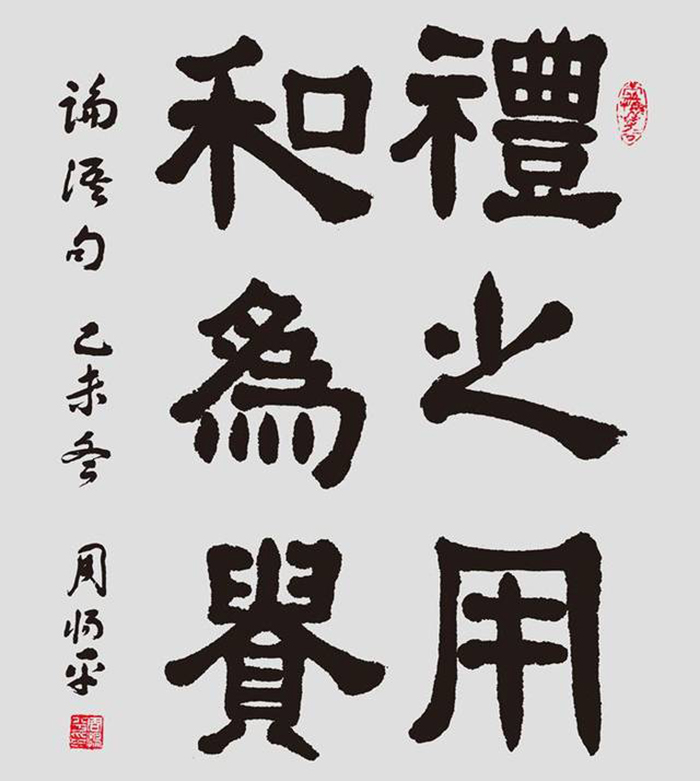 禮之用
和為貴
論語句 乙未冬 周炳平